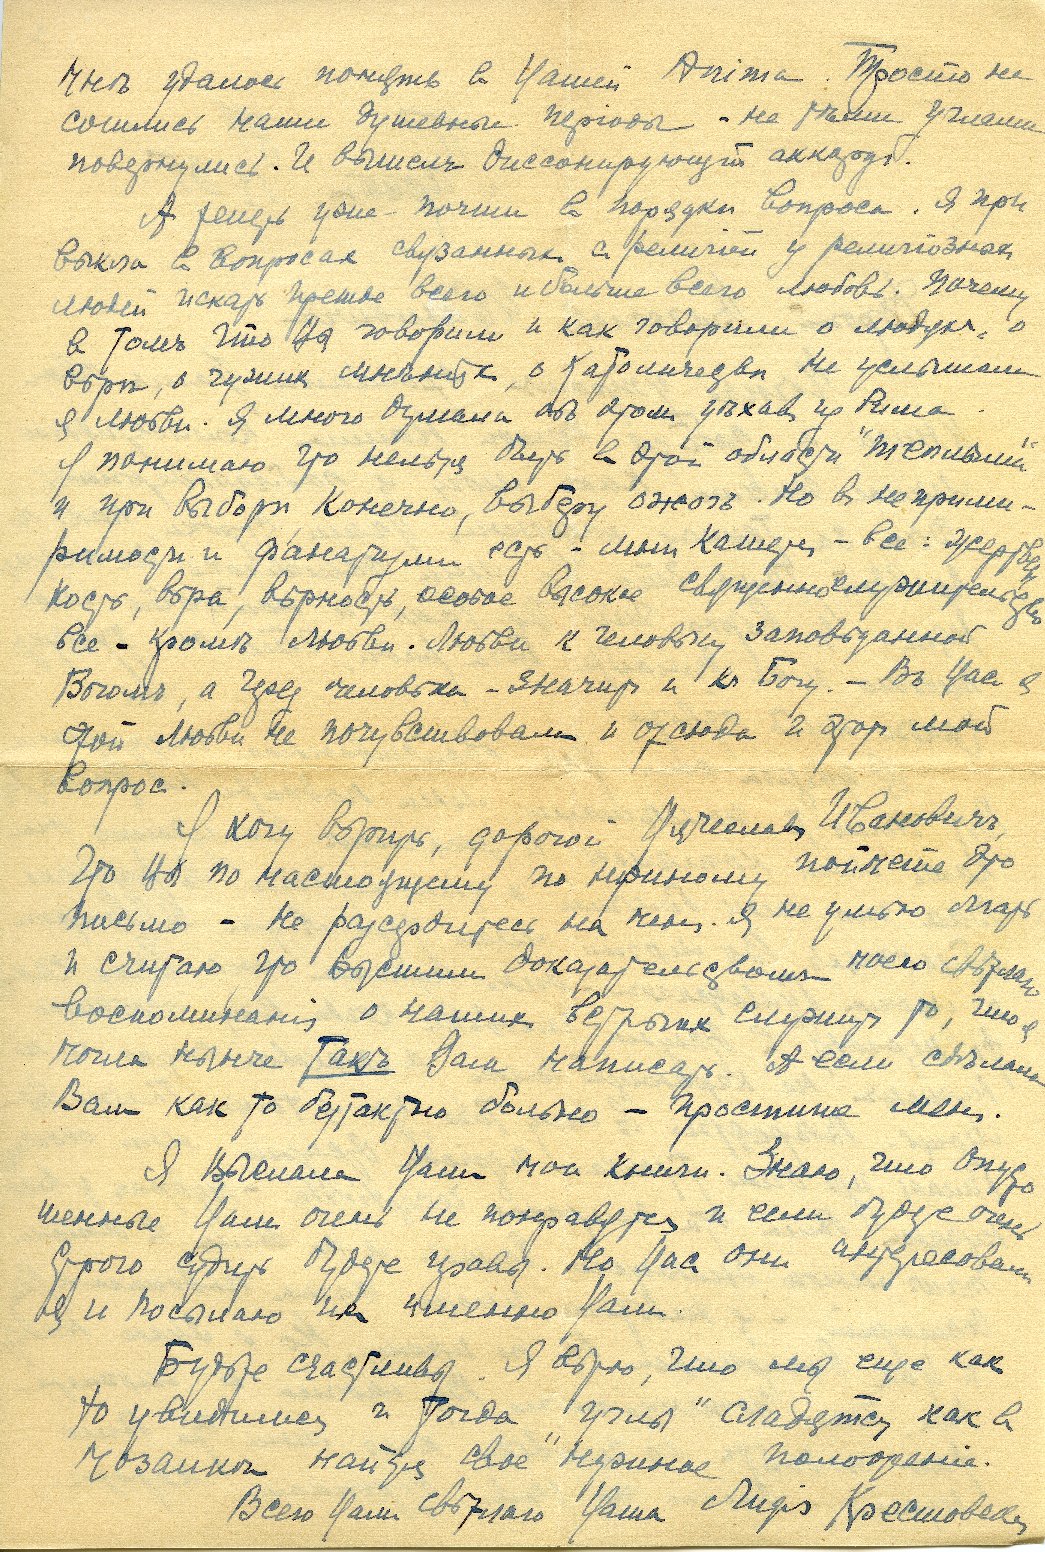 мнѣ удалось понять въ Вашей Anima. Просто не
сошлись наши душевные періоды - не тѣми углами
повернулись. И вышелъ диссонирующій аккордъ.
А теперь уже почти въ порядкѣ вопроса. Я при
выкла въ вопросах связанных с религіей у религіозных
людей искать прежде всего и больше всего любовь. Почему
в томъ что Вы говорили и как говорили о людях, о
вѣрѣ, о чужих мнѣніях, о Католичествѣ не услышала
я любви. Я много думала объ этом уѣхав из Рима.
Я понимаю что нельзя быть в этой области "теплымъ"
и при выборѣ конечно, выберу ожогъ. Но в неприми-
римости и фанатизмѣ есть - мнѣ кажется - все: жертвен
ность, вѣра, вѣрность, особое высокое священнослужительство
все - кромѣ любви. Любви к человѣку заповѣданной
Богомъ, а чрез человѣка - значит и къ Богу. - Въ Вас я
этой любви не почувствовала и отсюда и этот мой
вопрос.
Я хочу вѣрить, дорогой Вячеслав Ивановичъ,
что Вы по настоящему по нужному поймете это
письмо - не разсердитесь на меня. Я не умѣю лгать
и считаю что высшим доказательством моего свѣтлаго
воспоминанія о наших встрѣчах служит то, что я
могла нынче такъ Вам написать. А если сдѣлала
Вам как то безтактно больно - простите меня.
Я выслала Вам мои книги. Знаю, что опусто
шенные Вам очень не понравятся и если будете очень
строго судить будете правы. Но Вас они интересовали
я и посылаю их именно Вам.
Будьте счастливы. Я вѣрю, что мы еще как
то увидимся и тогда "углы" сладятся как в
мозаикѣ найдя свое "нужное положеніе.
Всего Вам свѣтлаго Ваша Лидія Крестовская